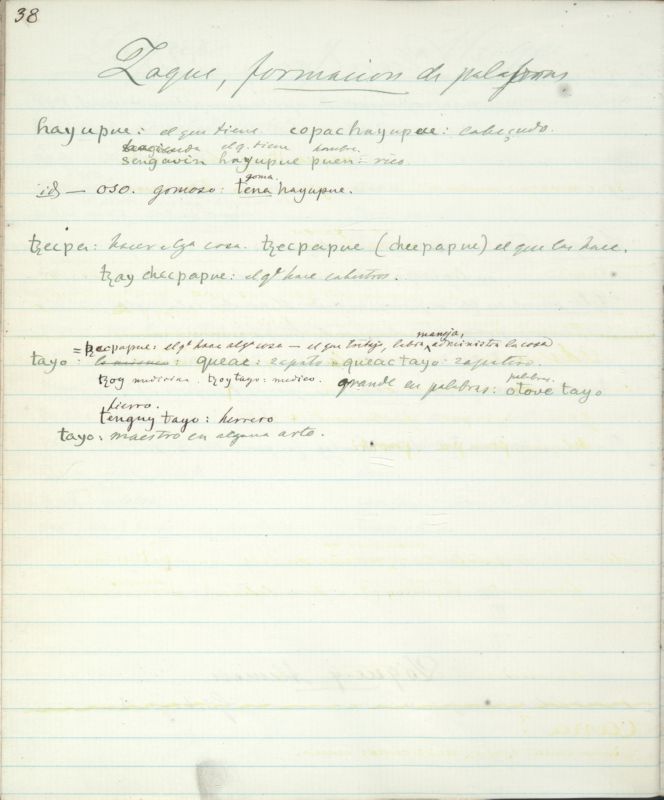 38
Zoque, formacion de palabras
hayupue: el que tiene copac hayupue: cabeçudo.
el q. tiene hombre.
sengavin hayupue puen = rico.
id — oso. gomoso: tena hayupue.
goma.
tzecpa: hacer alga cosa. tzecpapue (checpapue) el que las hace.
tzay checpapue: el q! hace cabestros.
= tzecpapue: el q! hace alg! cosa — el que trabaja, labra, administra la cosa
maneja,
tayo: lo mismo: queac: zapato queac tayo: zapatero.
tzoy medicina. tzoytayo: medico. grande en palabras: otove tayo
palabras.
hierro.
tenguy tayo: herrero
tayo: maestro en alguna arte.